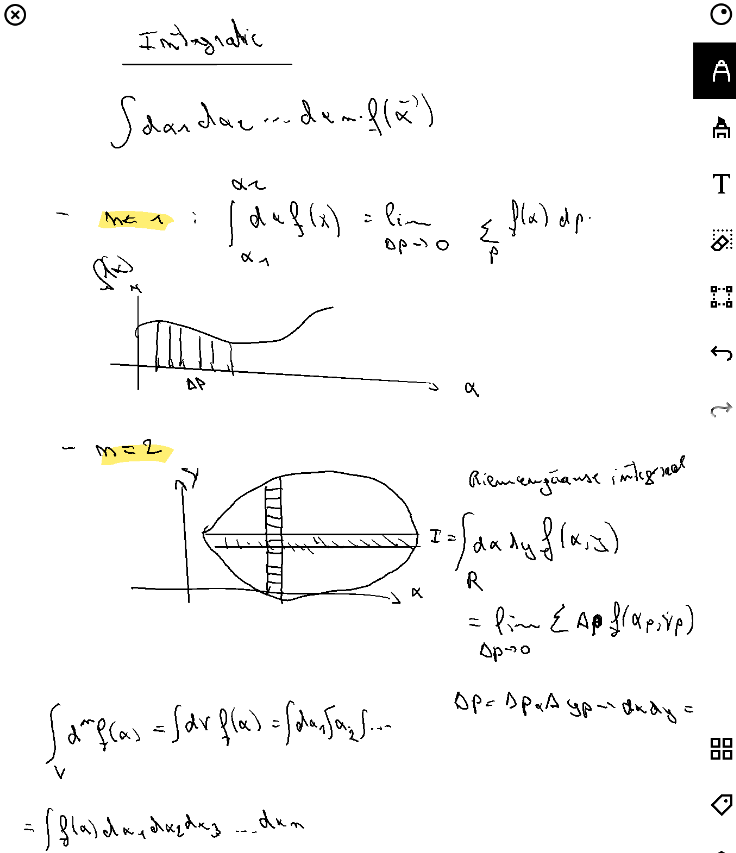 Integratie
∫dx₁ dx₂ ... dxₙ · f(x⃗)
- n = 1 : ∫_{x₁}^{x₂} dx f(x) = lim_{Δp→0} Σ_p f(x) dp.
f(x)
Δp
x
- n = 2
y
x
Riemengaanse integraal
I = ∫_R dx dy f(x,y)
= lim_{Δp→0} Σ Δp f(xp, yp)
Δp = Δpx Δyp → dx dy =
∫_V dⁿf(x) = ∫dV f(x) = ∫dx₁ ∫x₂ ∫...
= ∫f(x) dx₁ dx₂ dx₃ ... dxₙ
T